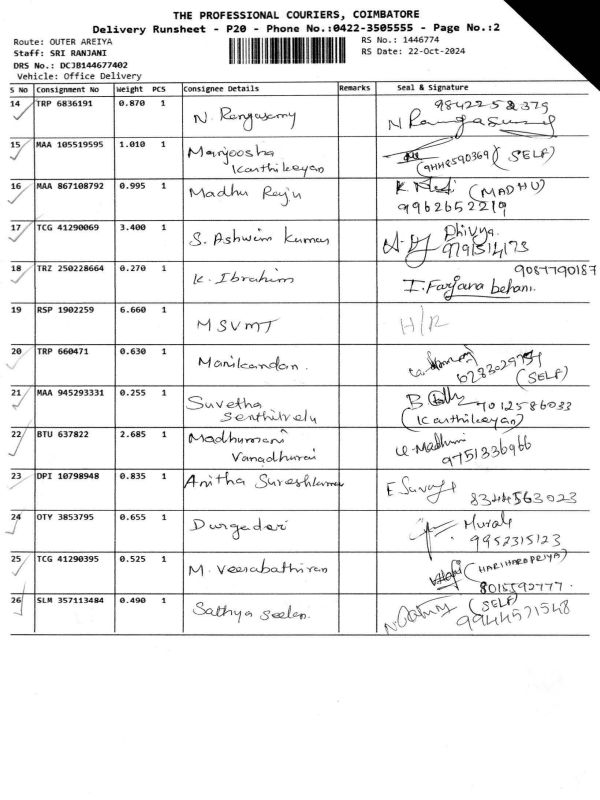 THE PROFESSIONAL COURIERS, COIMBATORE
Delivery Runsheet - P20 - Phone No.:0422-3505555 - Page No.:2
Route: OUTER AREIYA
RS No.: 1446774
Staff: SRI RANJANI
RS Date: 22-Oct-2024
DRS No.: DCJB144677402
Vehicle: Office Delivery
S No Consignment No Weight PCS Consignee Details Remarks Seal & Signature
14 TRP 6836191 0.870 1 N. Rangasamy 9842252379
15 MAA 105519595 1.010 1 Manjoosha (SELF)
Karthikeyan
16 MAA 867108792 0.995 1 Madhu Raju (MADHU)
9962652219
17 TCG 41290069 3.400 1 S. Ashwin Kumar Dhivya.
9791514173
18 TRZ 250228664 0.270 1 K. Ibrahim 9087790187
I. Farjana behani.
19 RSP 1902259 6.660 1 MSVMT H/R
20 TRP 660471 0.630 1 Manikandan.
(SELF)
21 MAA 945293331 0.255 1 Suvetha 7012586033
Senthilvelu (Karthikeyan)
22 BTU 637822 2.685 1 Madhumani
9751336966
23 DPI 10798948 0.835 1 Anitha Sureshkumar
8344563023
24 OTY 3853795 0.655 1 Durgadevi Murali
9952315123
25 TCG 41290395 0.525 1 M. Veerabathiran (HARIHARAPRIYA)
8015592777.
26 SLM 357113484 0.490 1 Sathya Seelan. (SELF)
9944571548